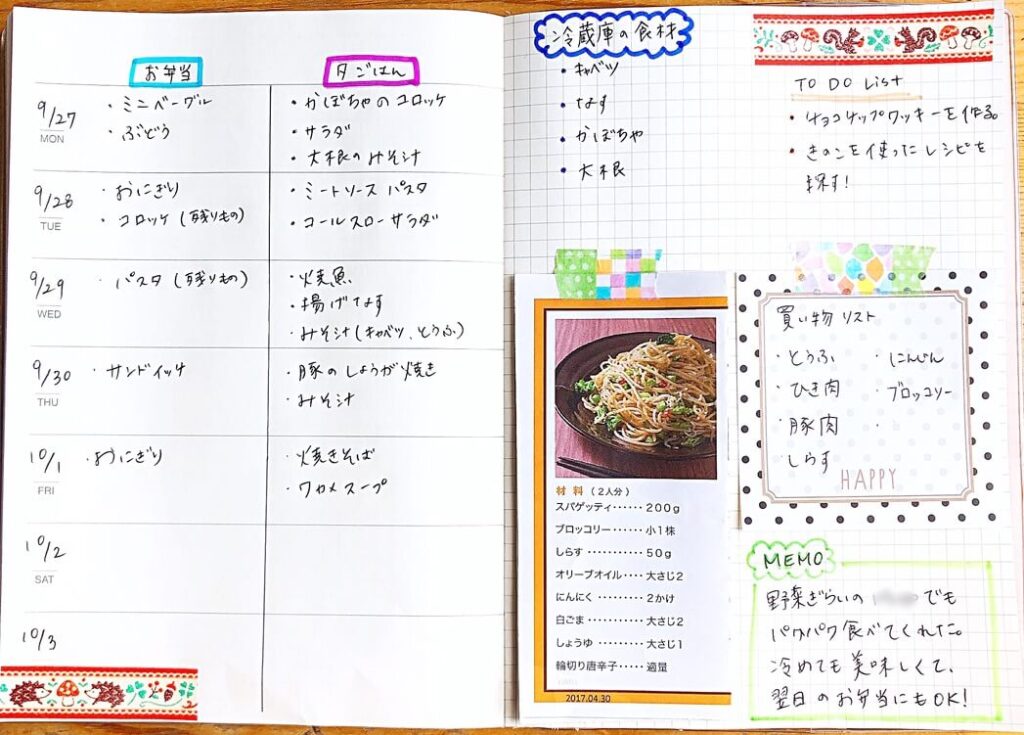 お弁当
夕ごはん
9/27
MON
・ミニベーグル
・ぶどう
・かぼちゃのコロッケ
・サラダ
・大根のみそ汁
9/28
TUE
・おにぎり
・コロッケ(残りもの)
・ミートソースパスタ
・コールスローサラダ
9/29
WED
・パスタ(残りもの)
・焼魚
・揚げなす
・みそ汁(キャベツ、とうふ)
9/30
THU
・サンドイッチ
・豚のしょうが焼き
・みそ汁
10/1
FRI
・おにぎり
・焼きそば
・ワカメスープ
10/2
SAT
10/3
冷蔵庫の食材
・キャベツ
・なす
・かぼちゃ
・大根
TO DO List
・チョコチップクッキーを作る。
・きのこを使ったレシピを
探す!
材料(2人分)
スパゲッティ・・・・・・200g
ブロッコリー・・・・・・小1株
しらす・・・・・・・・・・・50g
オリーブオイル・・・・大さじ2
にんにく・・・・・・・・・2かけ
白ごま・・・・・・・・・・・大さじ2
しょうゆ・・・・・・・・・大さじ1
輪切り唐辛子・・・・・適量
2017.04.30
買い物リスト
・とうふ
・ひき肉
・豚肉
・しらす
・にんじん
・ブロッコリー
・
HAPPY
MEMO
野菜ぎらいの でも
パクパク食べてくれた。
冷めても美味しくて、
翌日のお弁当にもOK!